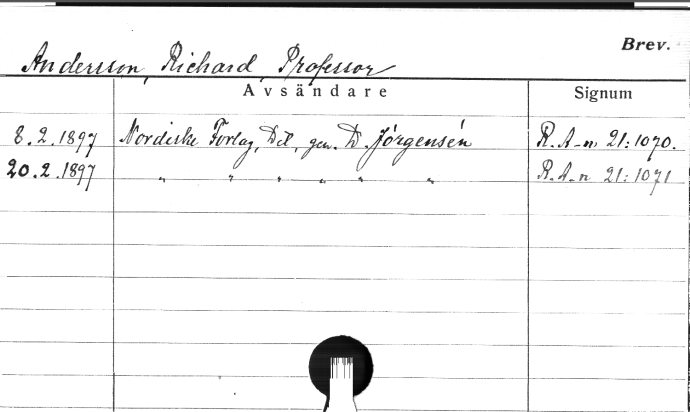 Brev.
Andersson, Richard, Professor
Avsändare Signum
8.2.1897 Nordiske Forlag, Det, gen. D. Jörgensen R. A-n 21:1070.
20.2.1897 " " " " " " R. A-n 21:1071